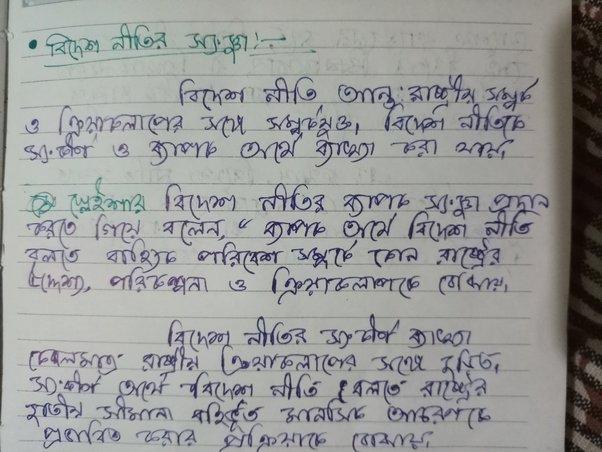 • বিদেশ নীতির সংজ্ঞা :—
বিদেশ নীতি আন্তঃরাষ্ট্রীয় সম্পর্ক
ও ক্রিয়াকলাপের সঙ্গে সম্পর্কযুক্ত। বিদেশ নীতিকে
সংকীর্ণ ও ব্যাপক অর্থে ব্যাখ্যা করা যায়।
বিদেশ নীতির ব্যাপক সংজ্ঞা প্রদান
করতে গিয়ে বলেন, “ ব্যাপক অর্থে বিদেশ নীতি
বলতে বাহ্যিক পরিবেশ সম্পর্কে কোন রাষ্ট্রের
উদ্দেশ্য, পরিকল্পনা ও ক্রিয়াকলাপকে বোঝায়।
বিদেশ নীতির সংকীর্ণ ব্যাখ্যা
কেবলমাত্র রাষ্ট্রীয় ক্রিয়াকলাপের সঙ্গে
সংকীর্ণ অর্থে বিদেশ নীতি বলতে রাষ্ট্রের
সীমানা বহির্ভূত মানসিক আচরণকে
প্রভাবিত করার প্রক্রিয়াকে বোঝায়।